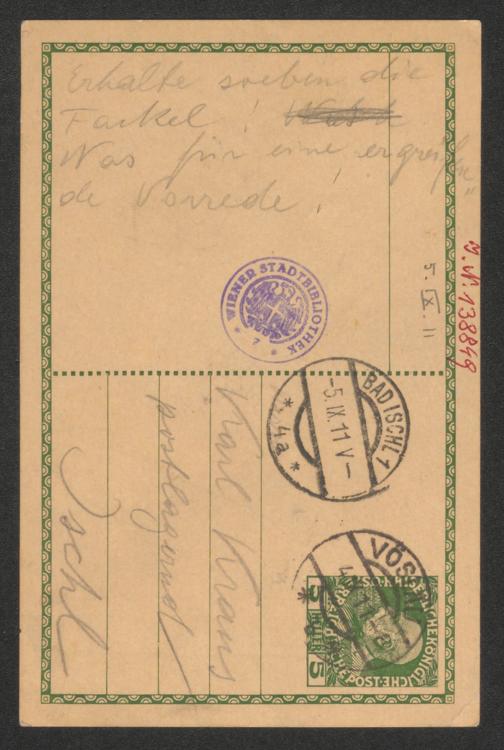 Erhalte soeben die
Fackel!
Was für eine ergreifen-
de Vorrede!
WIENER STADTBIBLIOTHEK
* 7 *
5. IX. 11
I. N. 138849
BAD ISCHL 1
-5.IX.11 V-
* 4a *
Karl Kraus
postlagernd
Ischl
VÖS
KAISERLICHE KÖNIGLICHE
ÖSTERREICHISCHE POST
5 HELLER 5